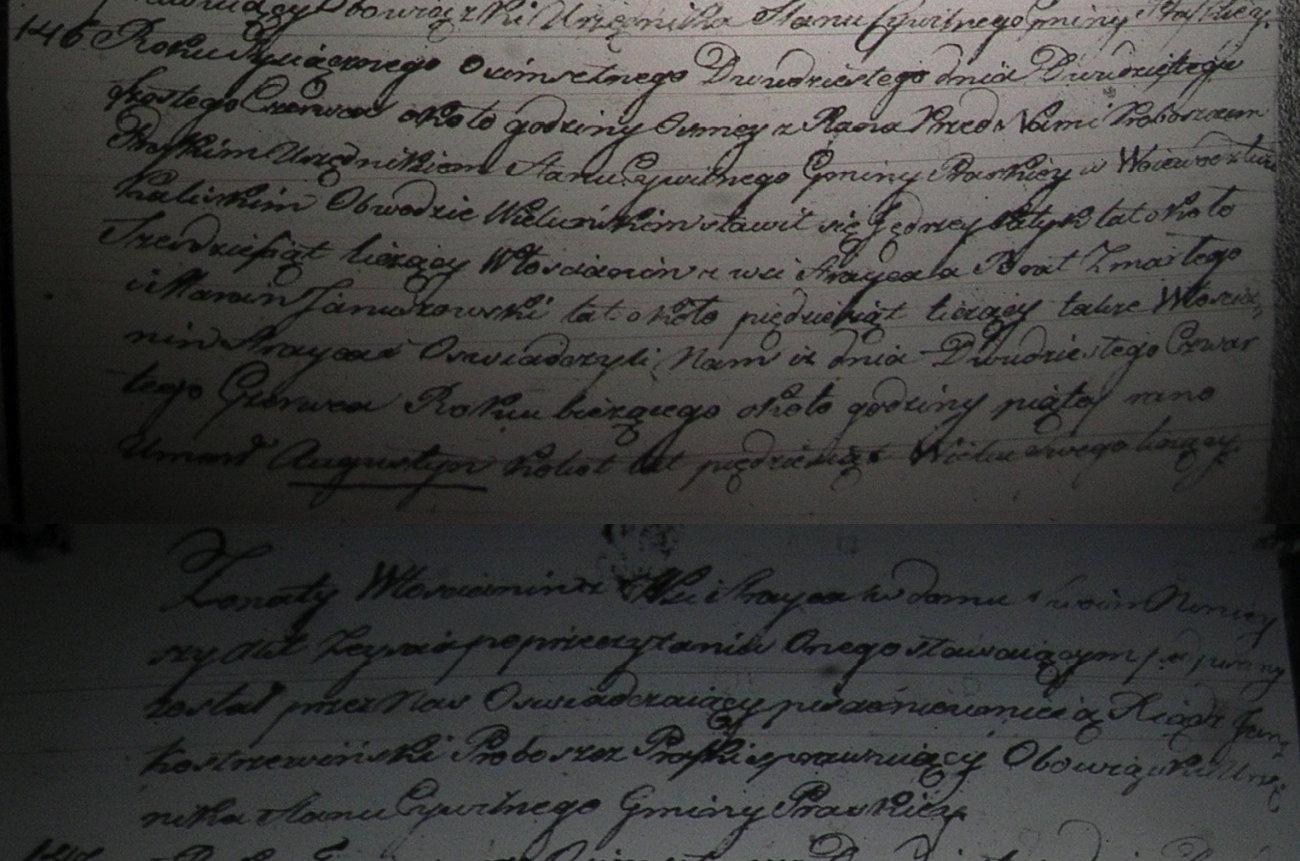 Obowiązki Urzędnika Stanu Cywilnego Gminy Praszkiey.
146 Roku Tysiącznego Osimsetnego Dwudziestego dnia Dwudziętego
szostego Czerwca około godziny Osmey z Rana Przed Nami Proboszczem
Praskim Urzędnikiem Stanu Cywilnego Gminy Praskiey w Woiewodztwie
Kaliskim Obwodzie Wieluńskim stawił się Jędrzey lat około
Szesdziesiąt liczący Włościanin z wsi Strayca a Brat Zmarłego
i Marcin Januszowski lat około piędziesiąt liczący takze Włoscia,
nin Strayca Oswiadczyli Nam iz dnia Dwudziestego Czwar
tego Czerwca Roku bieżącego około godziny piątej rano
Umarł Augustyn lat piędziesiąt Wieku swego liczący
Zonaty Włoscianin z Wsi Strayca w domu swoim Niniey
szy Akt Zeyscia po przeczytaniu Onego stawaiącym podpisany
został przez Nas Oswiadczaiący pisać nieumieią Xiądz Jan
Kostrzewiński Proboszcz Praski sprawuiący Obowiązki Urzę
nika Stanu Cywilnego Gminy Praskiey